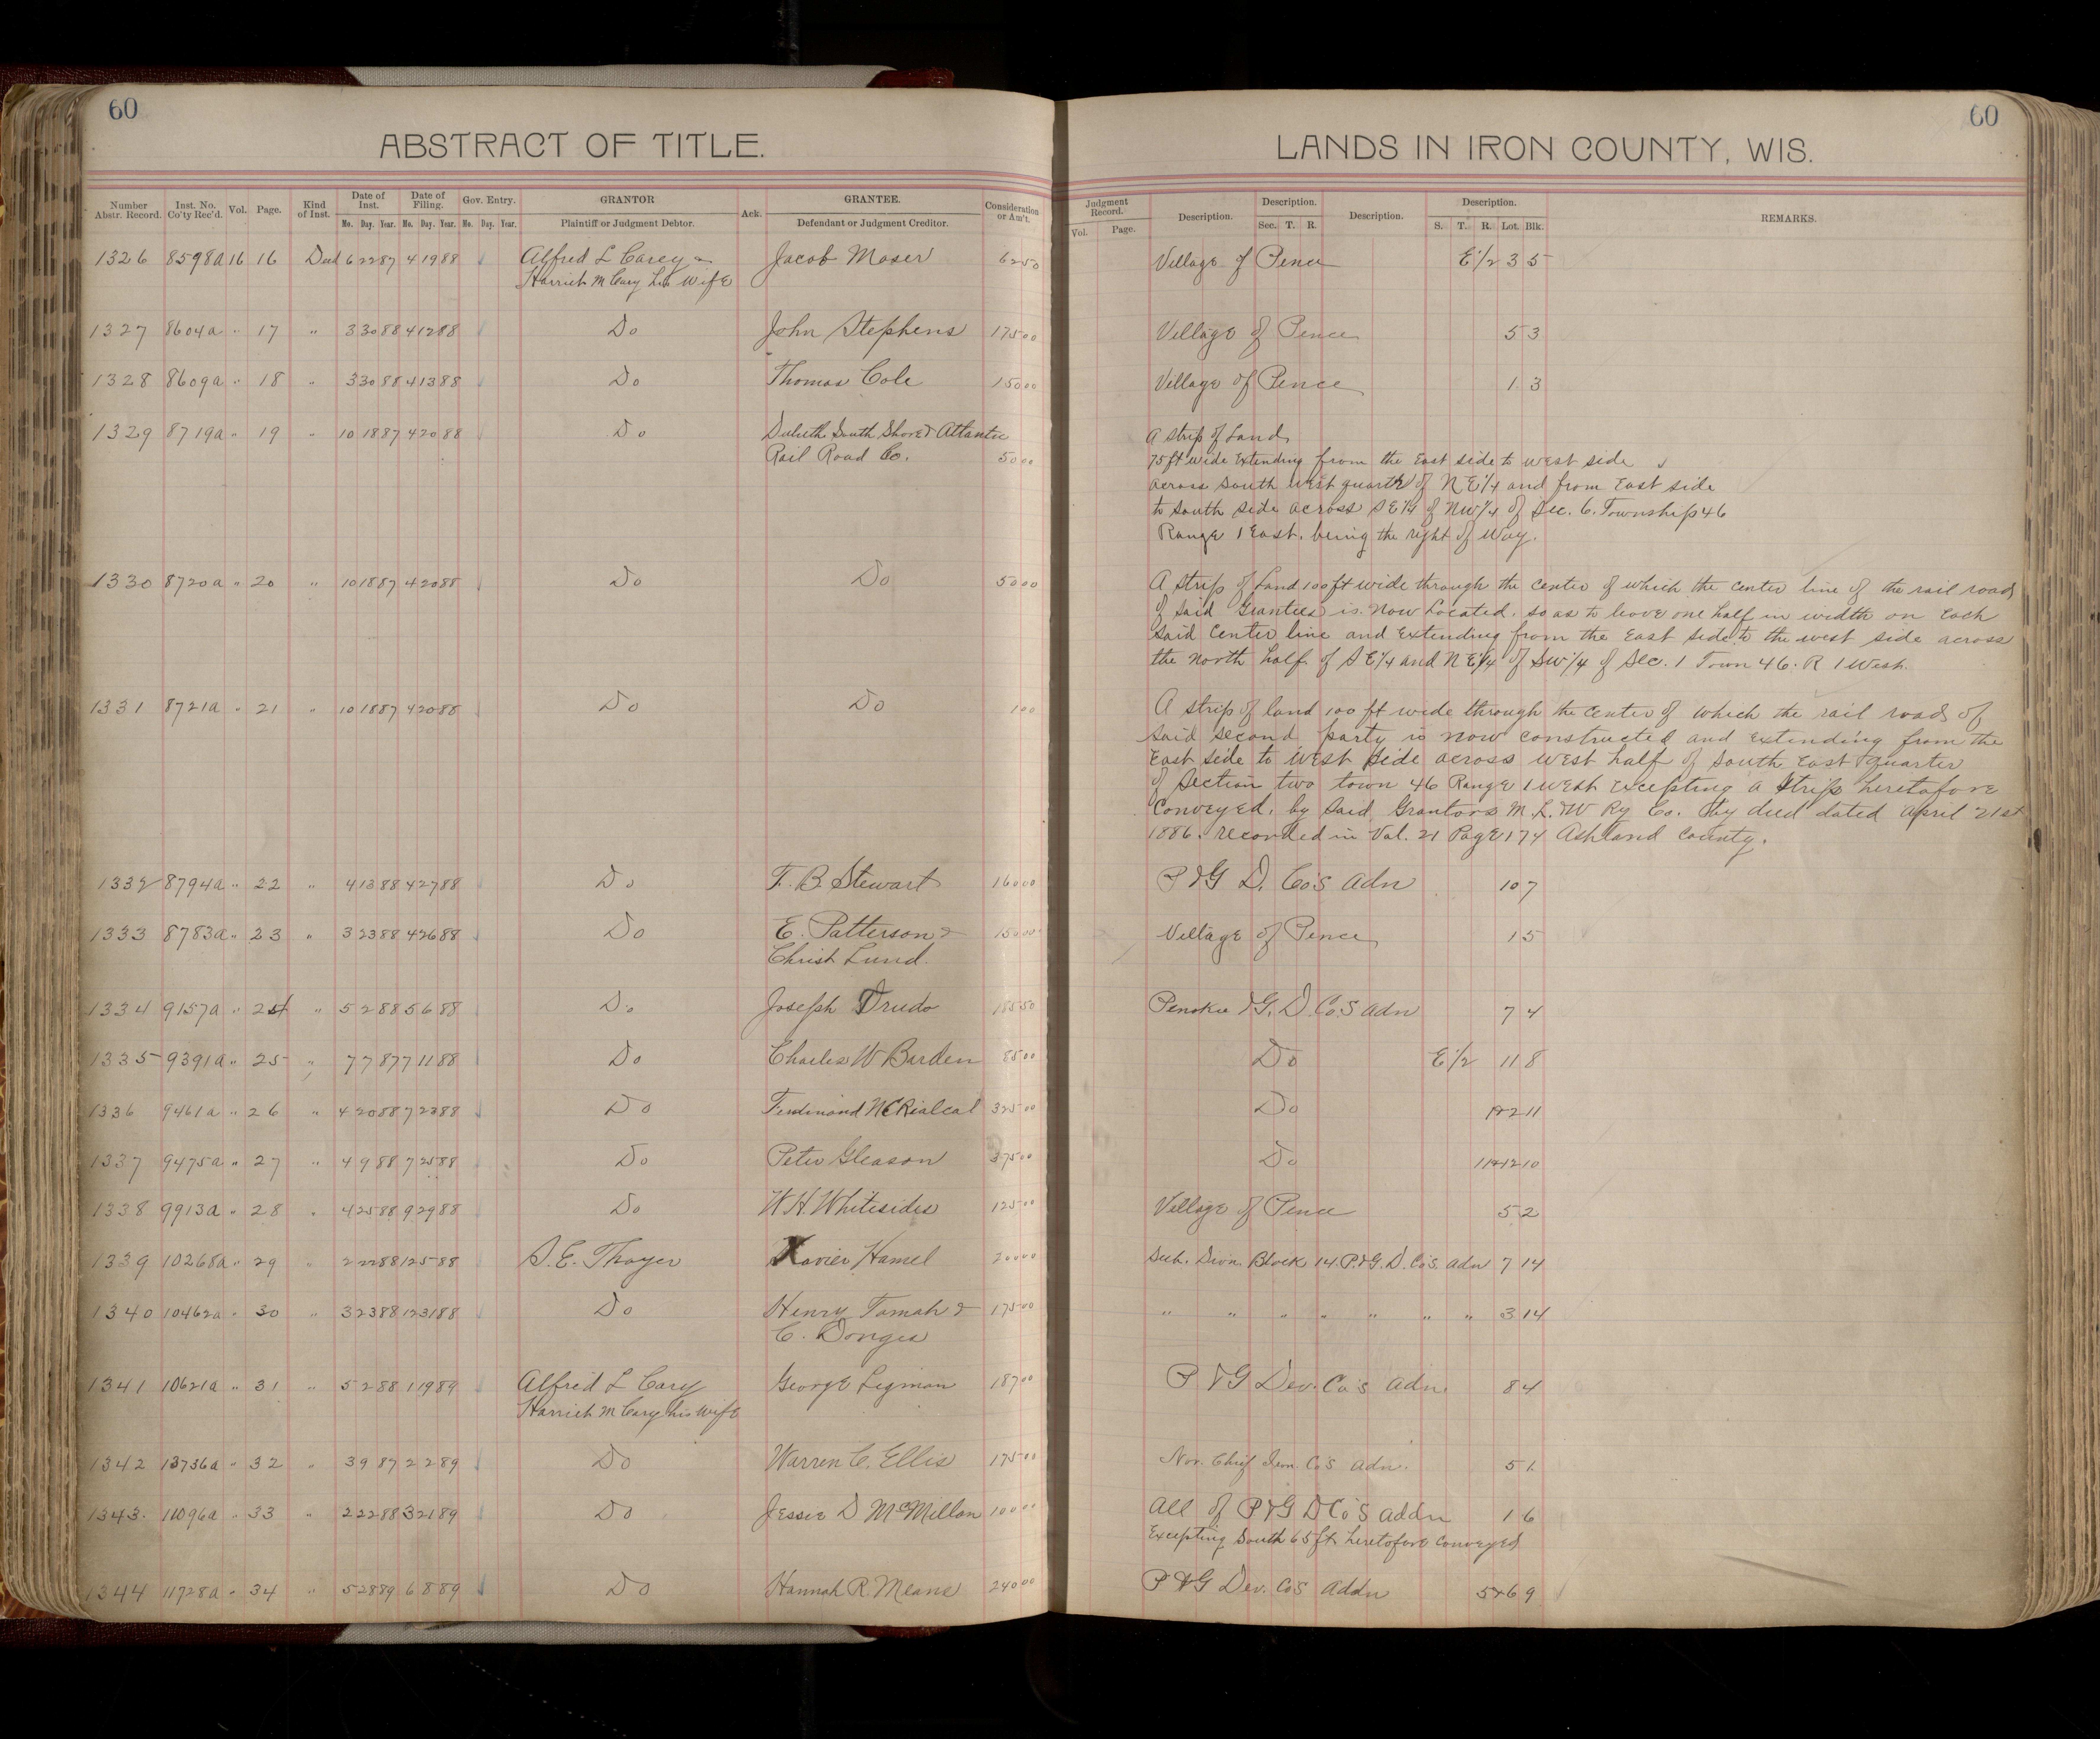 60
ABSTRACT OF TITLE.
Number Abstr. Record. Inst. No. Co'ty Rec'd. Vol. Page. Kind of Inst. Date of Inst. Mo. Day. Year. Date of Filing. Mo. Day. Year. Gov. Entry. Mo. Day. Year. GRANTOR Plaintiff or Judgment Debtor. Ack. GRANTEE. Defendant or Judgment Creditor. Consideration or Am't.
1326 8598a 16 16 Deed 6 22 87 4 19 88 Alfred L Carey & Jacob Moser 62 50
Harriet M Cary his wife
1327 8604a " 17 " 3 30 88 4 12 88 Do John Stephens 175 00
1328 8609a " 18 " 3 30 88 4 13 88 Do Thomas Cole 150 00
1329 8719a " 19 " 10 18 87 4 20 88 Do Duluth South Shore & Atlantic
Rail Road Co. 50 00
1330 8720a " 20 " 10 18 87 4 20 88 Do Do 50 00
1331 8721a " 21 " 10 18 87 4 20 88 Do Do 1 00
1332 8794a " 22 " 4 13 88 4 27 88 Do F. B. Stewart 160 00
1333 8783a " 23 " 3 23 88 4 26 88 Do E. Patterson & 150 00
Christ Lund.
1334 9157a " 24 " 5 2 88 5 6 88 Do Joseph Trudo 185 50
1335 9391a " 25 " 7 7 87 7 11 88 Do Charles W Barden 85 00
1336 9461a " 26 " 4 20 88 7 23 88 Do Ferdinand 325 00
1337 9475a " 27 " 4 9 88 7 25 88 Do Peter Gleason 375 00
1338 9913a " 28 " 4 25 88 9 29 88 Do W H Whitesides 125 00
1339 10268a " 29 " 2 22 88 12 5 88 S. E. Thayer Xavier Hamel 200 00
1340 10462a " 30 " 3 23 88 12 31 88 Do Henry Tamah & 175 00
C. Donges
1341 10621a " 31 " 5 2 88 1 19 89 Alfred L Cary George Ligman 187 00
Harriet M Cary his wife
1342 13736a " 32 " 3 9 87 2 2 89 Do Warren C. Ellis 175 00
1343. 11096a " 33 " 2 22 88 3 21 89 Do Jessie D McMillan 100 00
1344 11728a " 34 " 5 28 89 6 8 89 Do Hannah R. Means 240 00
60
LANDS IN IRON COUNTY, WIS.
Judgment Record. Vol. Page. Description. Description. Sec. T. R. Description. Description. S. T. R. Lot. Blk. REMARKS.
Village of Pence E 1/2 3 5
Village of Pence 5 3
Village of Pence 1 3
A strip of Land
75 ft wide Extending from the East side to west side
across South West quarter of N E 1/4 and from East side
to South side across S E 1/4 of NW 1/4 of Sec. 6. Township 46
Range 1 East. being the right of Way.
A strip of Land 100 ft wide through the center of which the center line of the rail road
of said Grantees is now Located. so as to leave one half in width on Each
said Center line and Extending from the East side to the west side across
the north half of S E 1/4 and N E 1/4 of SW 1/4 of Sec. 1 Town 46. R 1 West.
A strip of land 100 ft wide through the center of which the rail road of
said second party is now constructed and extending from the
East side to West side across West half of South East Quarter
of Section two town 46 Range 1 West Excepting a strip heretofore
Conveyed, by said Grantors M. L. & W Ry Co. by deed dated April 21st
1886. recorded in Vol. 21 Page 174 Ashland County.
P & G D. Co's Adn 10 7
Village of Pence 1 5
Penokee & G. D. Co.S Adn 7 4
Do E 1/2 11 8
Do 1&2 11
Do 11&12 10
Village of Pence 5 2
Sub. Divn. Block 14. P. & G. D. Co's. Adn 7 14
" " " " " " " 3 14
P & G Dev. Co's Adn. 8 4
Nor. Chief Iron Co's Adn. 5 1
All of P & G D Co's Addn 1 6
Excepting South 65 ft. heretofore Conveyed
P & G Dev. Co's Addn 5&6 9